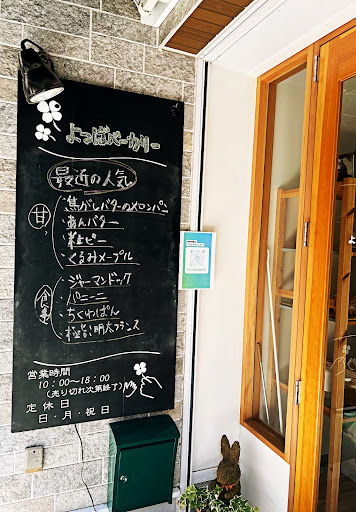 よつばベーカリー
最近の人気
甘
焦がしバターのメロンパン
あんバター
くるみメープル
食事
ジャーマンドック
パニーニ
ちくわぱん
極旨!明太フランス
営業時間
10:00〜18:00
(売り切れ次第終了)
定休日
日・月・祝日